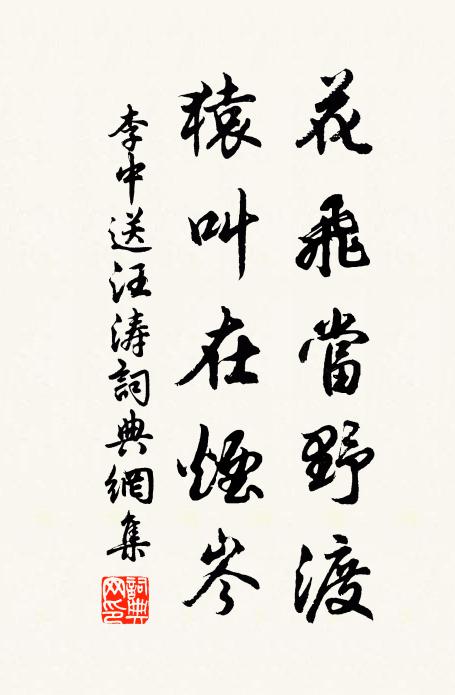 花飛當野渡
猿叫在煙岑
李中送汪濤詞典網集
詞典网印